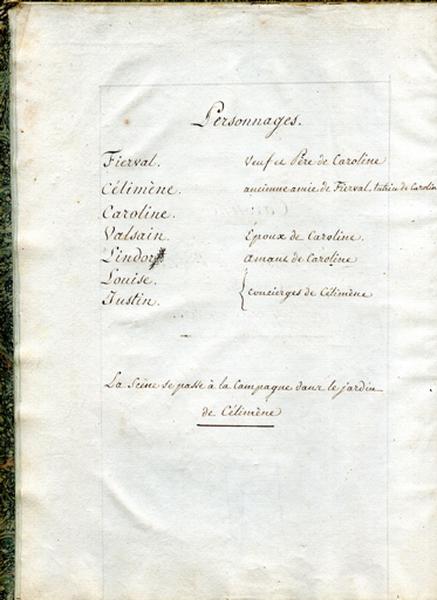 Personnages.
Fierval. Veuf et Père de Caroline
Célimène. ancienne amie de Fierval, tutrice de Caroline
Caroline.
Valsain. Époux de Caroline.
Lindor amant de Caroline
Louise.
Justin. concierges de Célimène
La Scène se passe à la Campagne dans le jardin
de Célimène